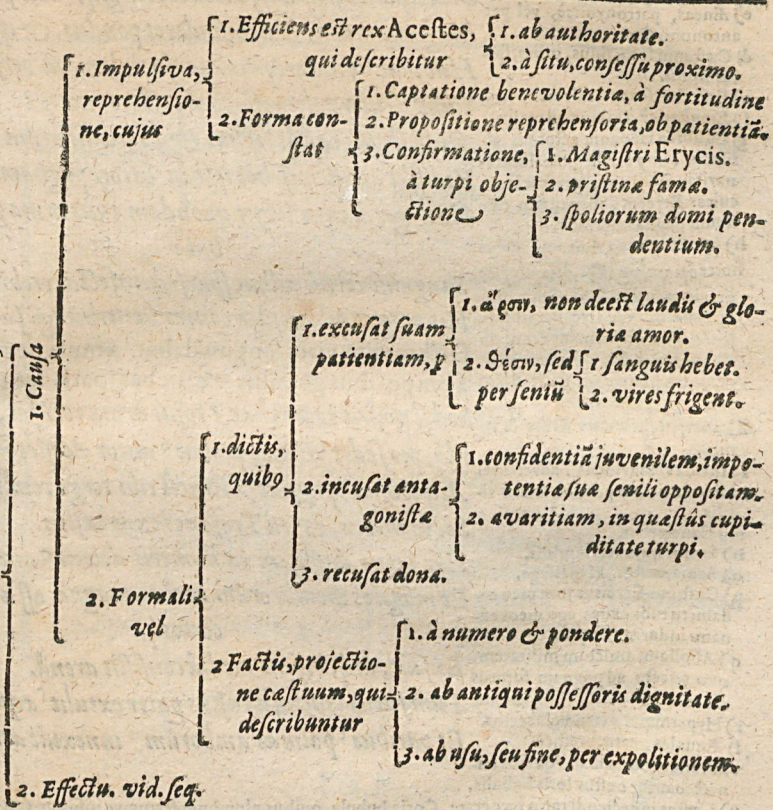 1. Causa
1. Impulsiva,
reprehensio-
ne, cujus
1. Efficiens est rex Acestes,
qui describitur
1. ab authoritate.
2. à situ, consessu proximo.
2. Forma con-
stat
1. Captatione benevolentiæ, à fortitudine
2. Propositione reprehensoria, ob patientiã.
3. Confirmatione,
à turpi obje-
ctione
1. Magistri Erycis.
2. pristinæ famæ.
3. spoliorum domi pen-
dentium.
2. Formali
vel
1. dictis,
quibꝰ
1. excusat suam
patientiam, ꝑ
1. ἄρσιν, non deest laudis & glo-
riæ amor.
2. θέσιν, sed
per seniũ
1 sanguis hebet.
2. vires frigent.
2. incusat anta-
gonistæ
1. confidentiã juvenilem, impo-
tentiæ suæ senili oppositam.
2. avaritiam, in quæstûs cupi-
ditate turpi.
3. recusat dona.
2 Factis, projectio-
ne cæstuum, qui
describuntur
1. à numero & pondere.
2. ab antiqui possessoris dignitate.
3. ab usu, seu fine, per expolitionem.
2. Effectu. vid. seq.